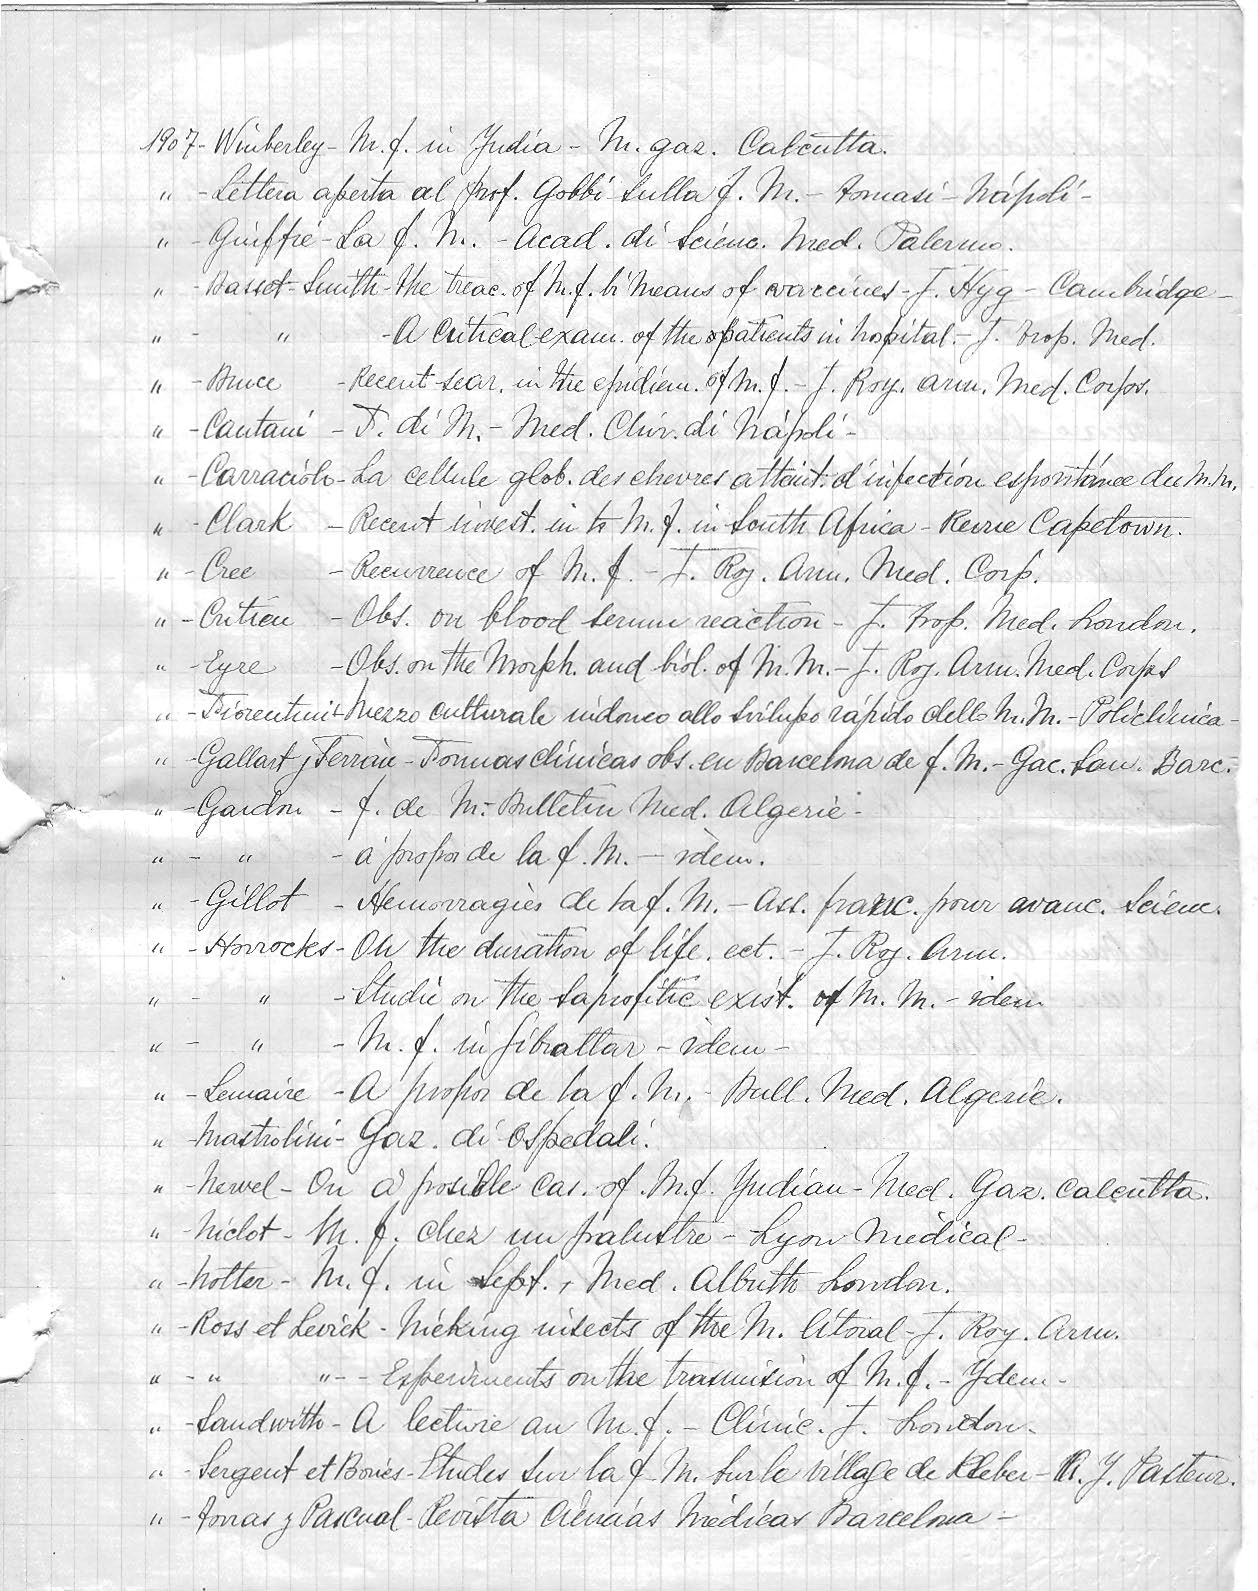 1907 - Wimberley - M. f. in Yndia - M. gaz. Calcutta.
" - Lettera aperta al prof. Gobbi sulla f. M. - Tomasi - Nápoli -
" - Giuffré - La f. M. - Acad. di Scienc. Med. Palermo.
" - Basset-Smith - The treac. of M. f. bi means of vaccines - J. Hyg - Cambridge -
" - " - A critical exam. of the patients in hospital. - J. trop. Med.
" - Bruce - Recent sear. in the epidiem. of M. f. - J. Roy. arm. Med. Corps.
" - Cantani - F. di M. - Med. Chir. di Nápoli -
" - Carraciólo - La cellule glob. des chevres atteint. d'infection espontánee du M. M.
" - Clark - Recent invest. in to M. f. in South Africa - Revue Capetown.
" - Cree - Recurrence of M. f. - J. Roy. Arm. Med. Corp.
" - Critien - Obs. on blood serum reaction - J. trop. Med. London.
" - Eyre - Obs. on the Morph. and biol. of M. M. - J. Roy. Arm. Med. Corps
" - Fiorentini - Mezzo culturale indoneo allo svilupo rápido dello M. M. - Policlinica -
" - Gallart y Ferrán - Formas clínicas obs. en Barcelona de f. M. - Gac. San. Barc. -
" - Gardon - f. de M. - Bulletin Med. Algerie -
" - " - á propos de la f. M. - idem.
" - Gillot - Hemorragies de la f. M. - Ass. franc. pour avanc. Scienc.
" - Horrocks - On the duration of life. ect. - J. Roy. Arm.
" - " - Studie on the saprofitic exist. of M. M. - idem
" - " - M. f. in Gibraltar - idem -
" - Lemaire - A propos de la f. M. - Bull. Med. Algerie.
" - Mastrolini - Gaz. di Ospedali.
" - Newel - On a posible cas. of M. f. Yndian - Med. Gaz. Calcutta.
" - Niclot - M. f. chez un palustre - Lyon Médical -
" - Notter - M. f. in Sept. , Med. Albutt London.
" - Ross et Levick - Nicking insects of the M. litoral - J. Roy. Arm.
" - " " - - Esperiments on the trasmision of M. f. - Ydem -
" - Sandwith - A lecture an M. f. - Clinic. J. London -
" - Sergent et Bories - Etudes sur la f. M. sur le village de Kleber - A. Y. Pasteur.
" - Torras y Pascual - Revista Ciencias Médicas Barcelona -